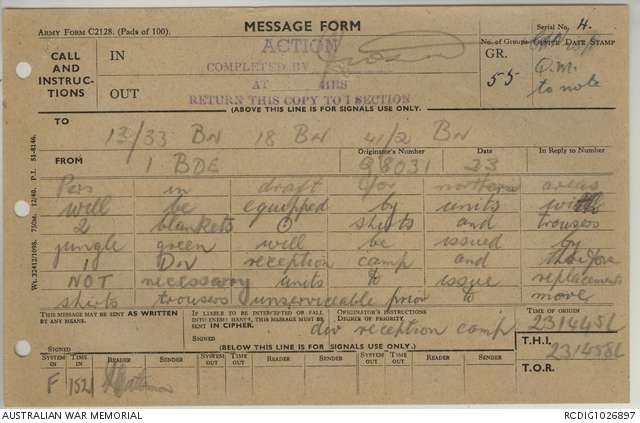 ARMY FORM C2128. (Pads of 100). MESSAGE FORM Serial No. 4.
CALL AND INSTRUCTIONS
IN
ACTION
COMPLETED BY
AT HRS
RETURN THIS COPY TO I SECTION
No. of Groups Office Date Stamp
GR.
55
Q.M.
to note
OUT
(ABOVE THIS LINE IS FOR SIGNALS USE ONLY.)
TO
13/33 BN 18 BN 41/2 BN
FROM Originator's Number Date In Reply to Number
1 BDE Q8031 23
Pers in draft for northern areas
will be equipped by units with
2 blankets ⊙ shirts and trousers
jungle green will be issued by
1 Div reception camp and therefore
NOT necessary units to issue replacements
shirts trousers unserviceable prior to move
THIS MESSAGE MAY BE SENT AS WRITTEN BY ANY MEANS.
IF LIABLE TO BE INTERCEPTED OR FALL INTO ENEMY HANDS, THIS MESSAGE MUST BE SENT IN CIPHER.
ORIGINATOR'S INSTRUCTIONS
DEGREE OF PRIORITY.
TIME OF ORIGIN
div reception camp
231445L
SIGNED
SIGNED
(BELOW THIS LINE IS FOR SIGNALS USE ONLY.)
T.H.I.
231458L
T.O.R.
SYSTEM IN TIME IN READER SENDER SYSTEM OUT TIME OUT READER SENDER SYSTEM OUT TIME OUT READER SENDER
F 1521
Wt. 32412/1098. 750m. 12/40. P.I. 51-8146.
AUSTRALIAN WAR MEMORIAL RCDIG1026897